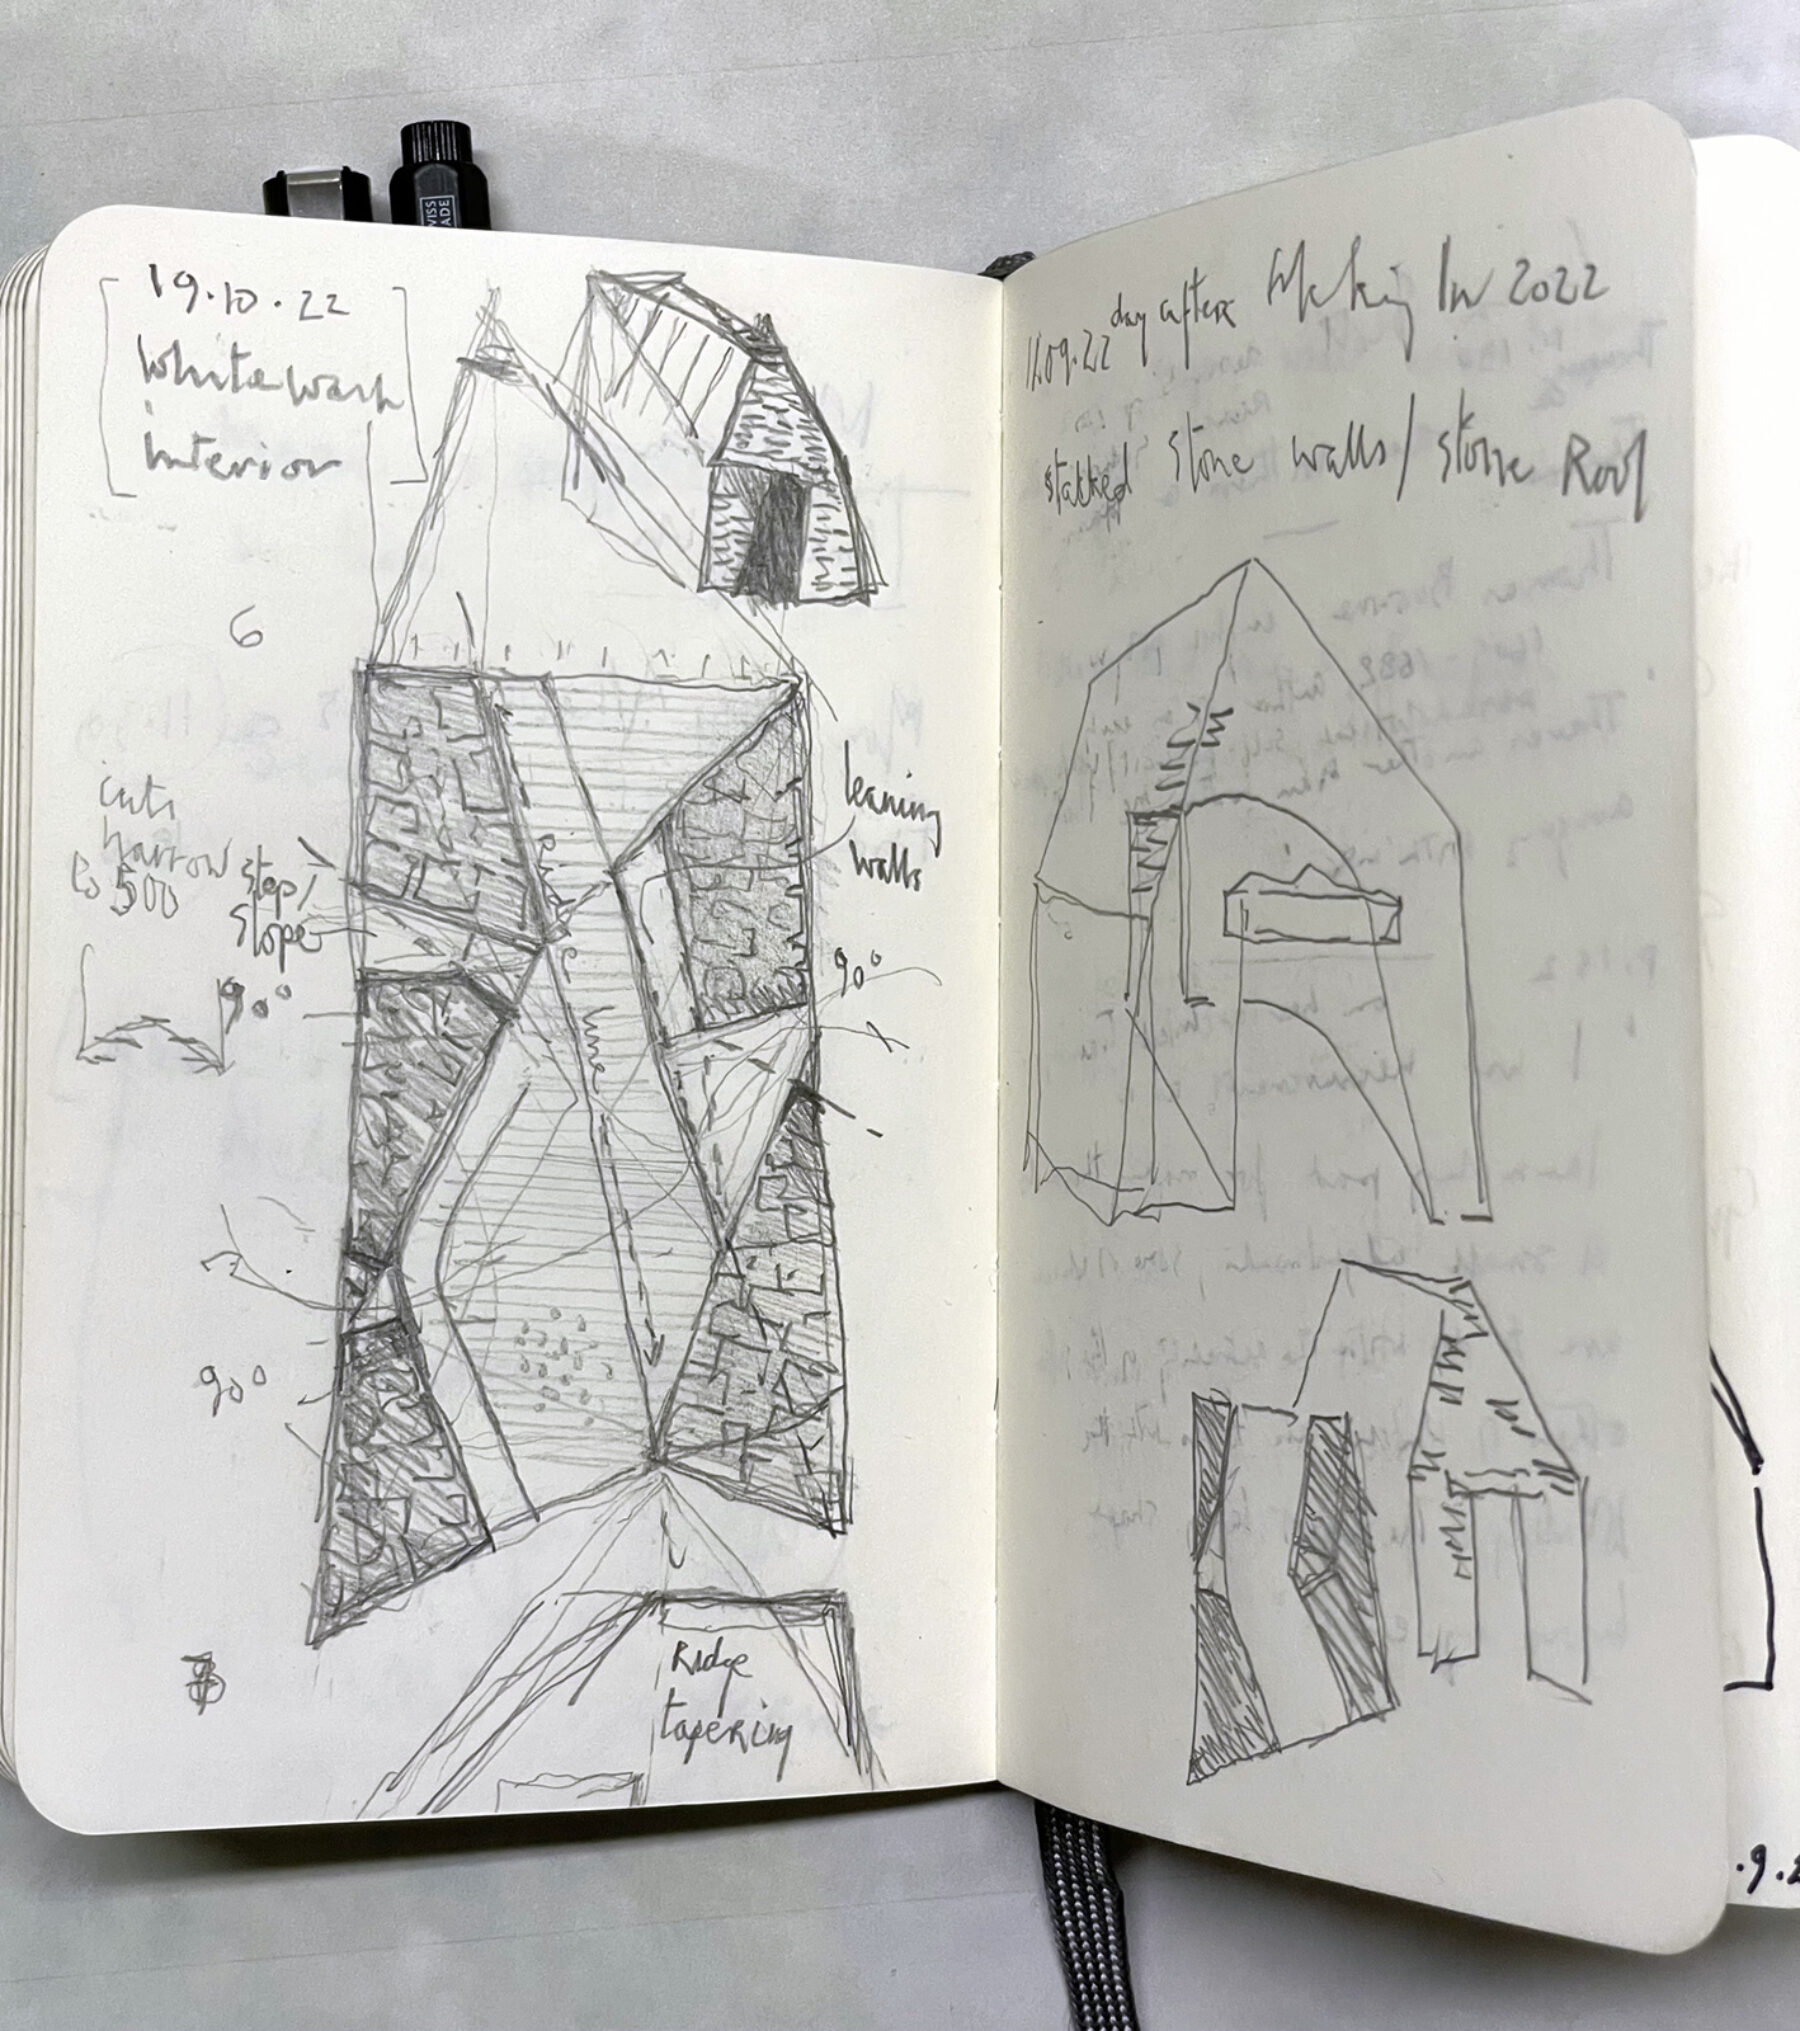 19.10.22
Whitewash
interior
6
cuts
narrow
to 500
step/
slope
90°
leaning
walls
90°
Ridge
line
90°
Ridge
tapering
11.09.22 day after Making In 2022
stacked stone walls / stone Roof